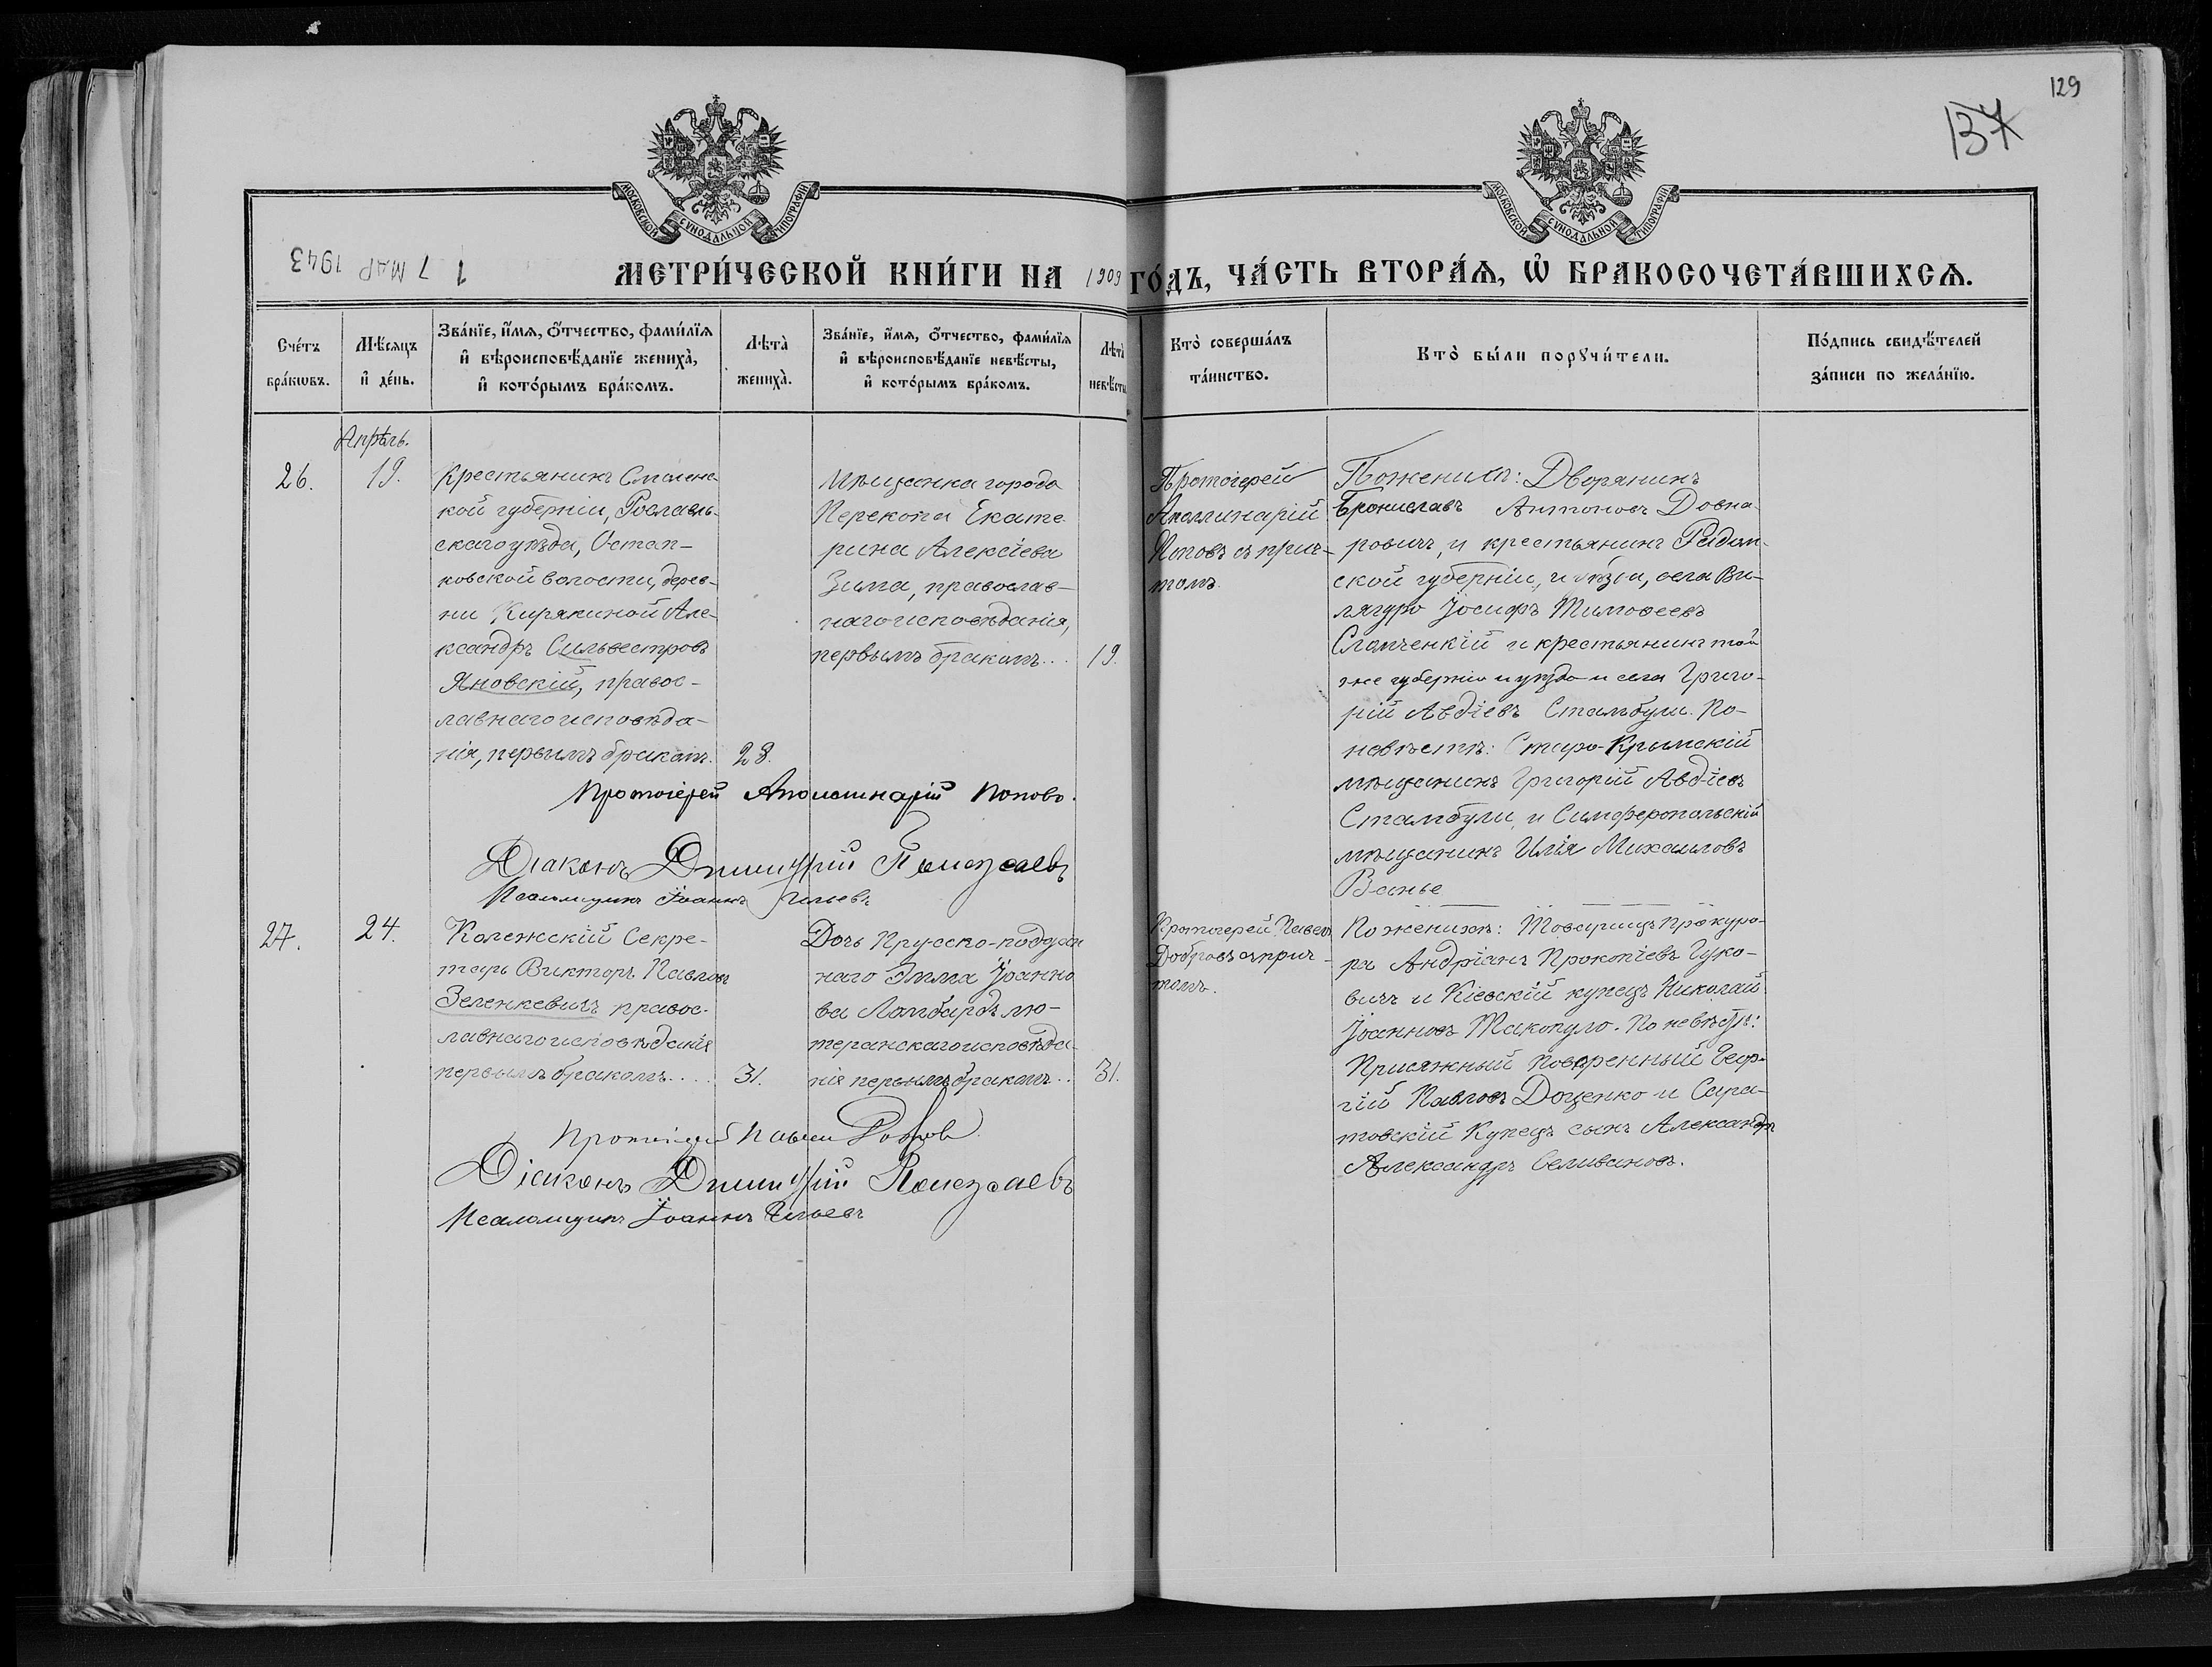 129
137
МОСКОВСКОЙ СѴНОДАЛЬНОЙ ТИПОГРАФІИ
МОСКОВСКОЙ СѴНОДАЛЬНОЙ ТИПОГРАФІИ
1 7 МАР 1943
МЕТРИ́ЧЕСКОЙ КНИ́ГИ НА 1909 ГО́ДЪ, ЧА́СТЬ ВТОРА́Ѧ, Ѽ БРАКОСОЧЕТА́ВШИХСѦ.
Сче́тъ
бра́кѡвъ.
Мѣ́сѧцъ
и҆ де́нь.
Зва́нїе, и҆́мѧ, ѻ҆́тчество, фами́лїѧ
и҆ вѣроисповѣ́данїе жениха̀,
и҆ кото́рымъ бра́комъ.
Лѣта̀
жениха̀.
Зва́нїе, и҆́мѧ, ѻ҆́тчество, фами́лїѧ
и҆ вѣроисповѣ́данїе невѣ́сты,
и҆ кото́рымъ бра́комъ.
Лѣта̀
невѣ́сты
Кто̀ соверша́лъ
та́инство.
Кто̀ бы́ли порꙋчи́тели.
По́дпись свидѣ́телей
за́писи по жела́нїю.
Апрѣль.
26.
19.
Крестьянинъ Смоленс
кой губерніи, Рославль
скаго уѣзда, Остап-
ковской волости, дерев-
ни Кирякиной Але-
ксандръ Сильвестровъ
Яновскій, правос-
лавнаго исповѣда-
нія, первымъ бракомъ.
28.
Мѣщанка города
Перекопа Екате-
рина Алексіева
Зима, православ-
наго исповѣданія,
первымъ бракомъ...
19.
Протоіерей
Аполлинарій
Поповъ съ прич-
томъ.
По женихѣ: Дворянинъ
Брониславъ Антоновъ Довна-
ровичъ, и крестьянинъ Радом-
ской губерніи, и уѣзда, села Ви-
лягуро Іосифъ Тимофеевъ
и крестьянинъ той
же губерніи и уѣзда и села Григо-
рій Авдіевъ Стамбули. По
невѣстѣ: Старо-Крымскій
мѣщанинъ Григорій Авдіевъ
Стамбули, и Симферопольскій
мѣщанинъ Илія Михаиловъ
Ванье
Протоіерей Аполлинарій Поповъ.
Діаконъ Димитрій
Псаломщикъ Іоаннъ Ильевъ
27.
24.
Колежскій Секре-
тарь Викторъ Павловъ
Зеленкевичъ правос-
лавнаго исповѣданія
первымъ бракомъ....
31.
Дочь Прусско-поддан
наго Эмма Іоанно
ва Ломбардъ лю-
теранскаго исповѣда-
нія первымъ бракомъ..
31.
Протоіерей Павелъ
Добровъ съ прич-
томъ.
По женихѣ: Товарищъ Прокуро-
ра Андріанъ Прокопіевъ Гуко-
вичъ и Кіевскій купецъ Николай
Іоанновъ Такопуло. По невѣстѣ:
Присяжный повѣренный Геор-
гій Павловъ Доценко и Сара-
товскій Купецъ сынъ Александръ
Александръ Селивановъ.
Протоіерей Павелъ Добровъ
Діаконъ Димитрій
Псаломщикъ Іоаннъ Ильевъ